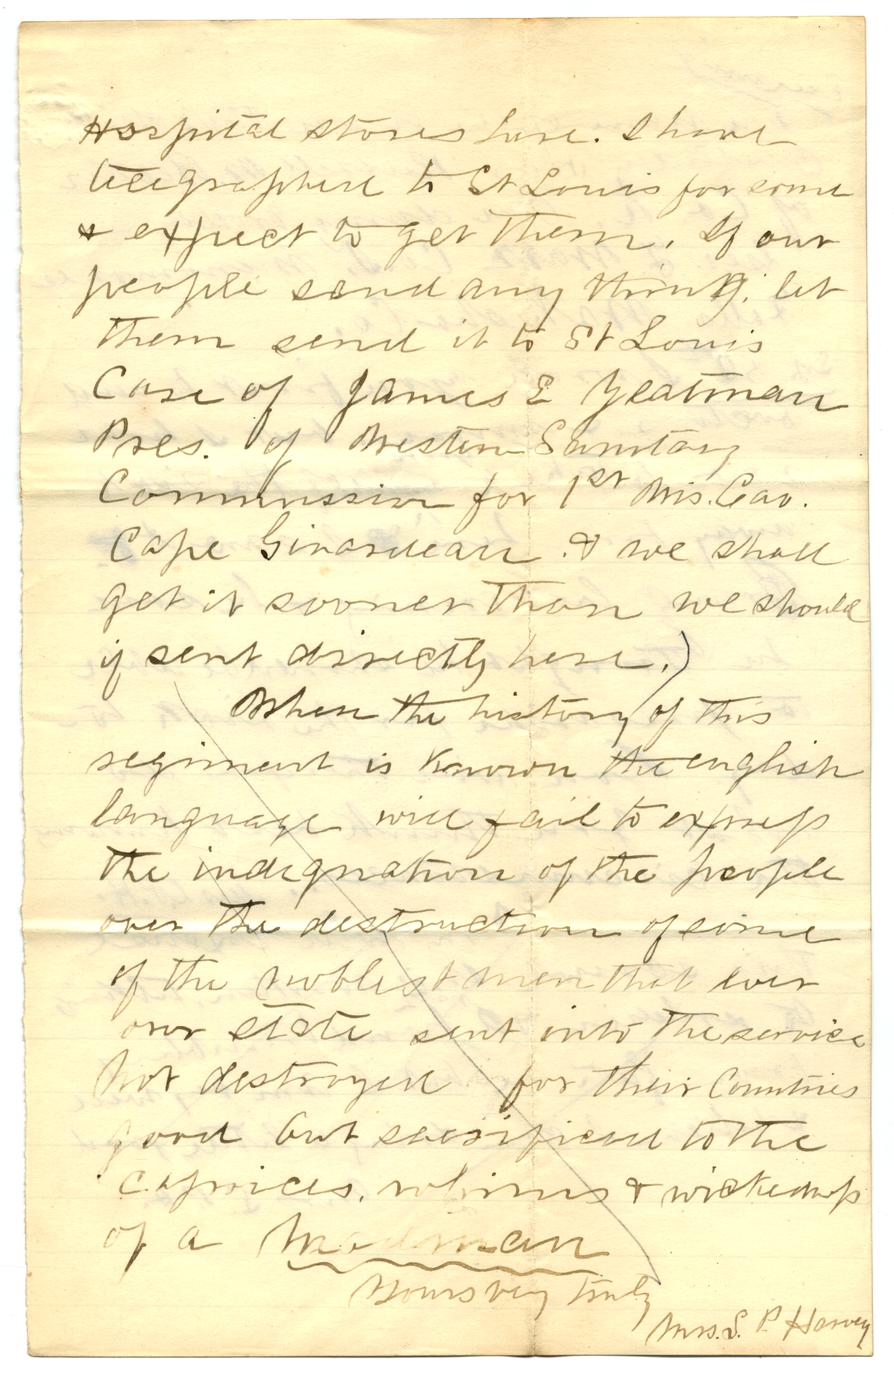 Hospital stores here. I have
telegraphed to St Louis for some
& expect to get them. If our
people send any thing, let
them send it to St Louis
Care of James E Yeatman
Pres. of Western Sanitary
Commission for 1st Wis. Cav.
Cape Girardeau & we shall
get it sooner than we should
if sent directly here.)
When the history of this
regiment is known the english
language will fail to express
the indignation of the people
over the destruction of some
of the noblest men that ever
our state sent into the service
Not destroyed for their Countries
good but sacrificed to the
caprices, whims & wickedness
of a Madman
Yours very truly
Mrs. L. P. Harvey